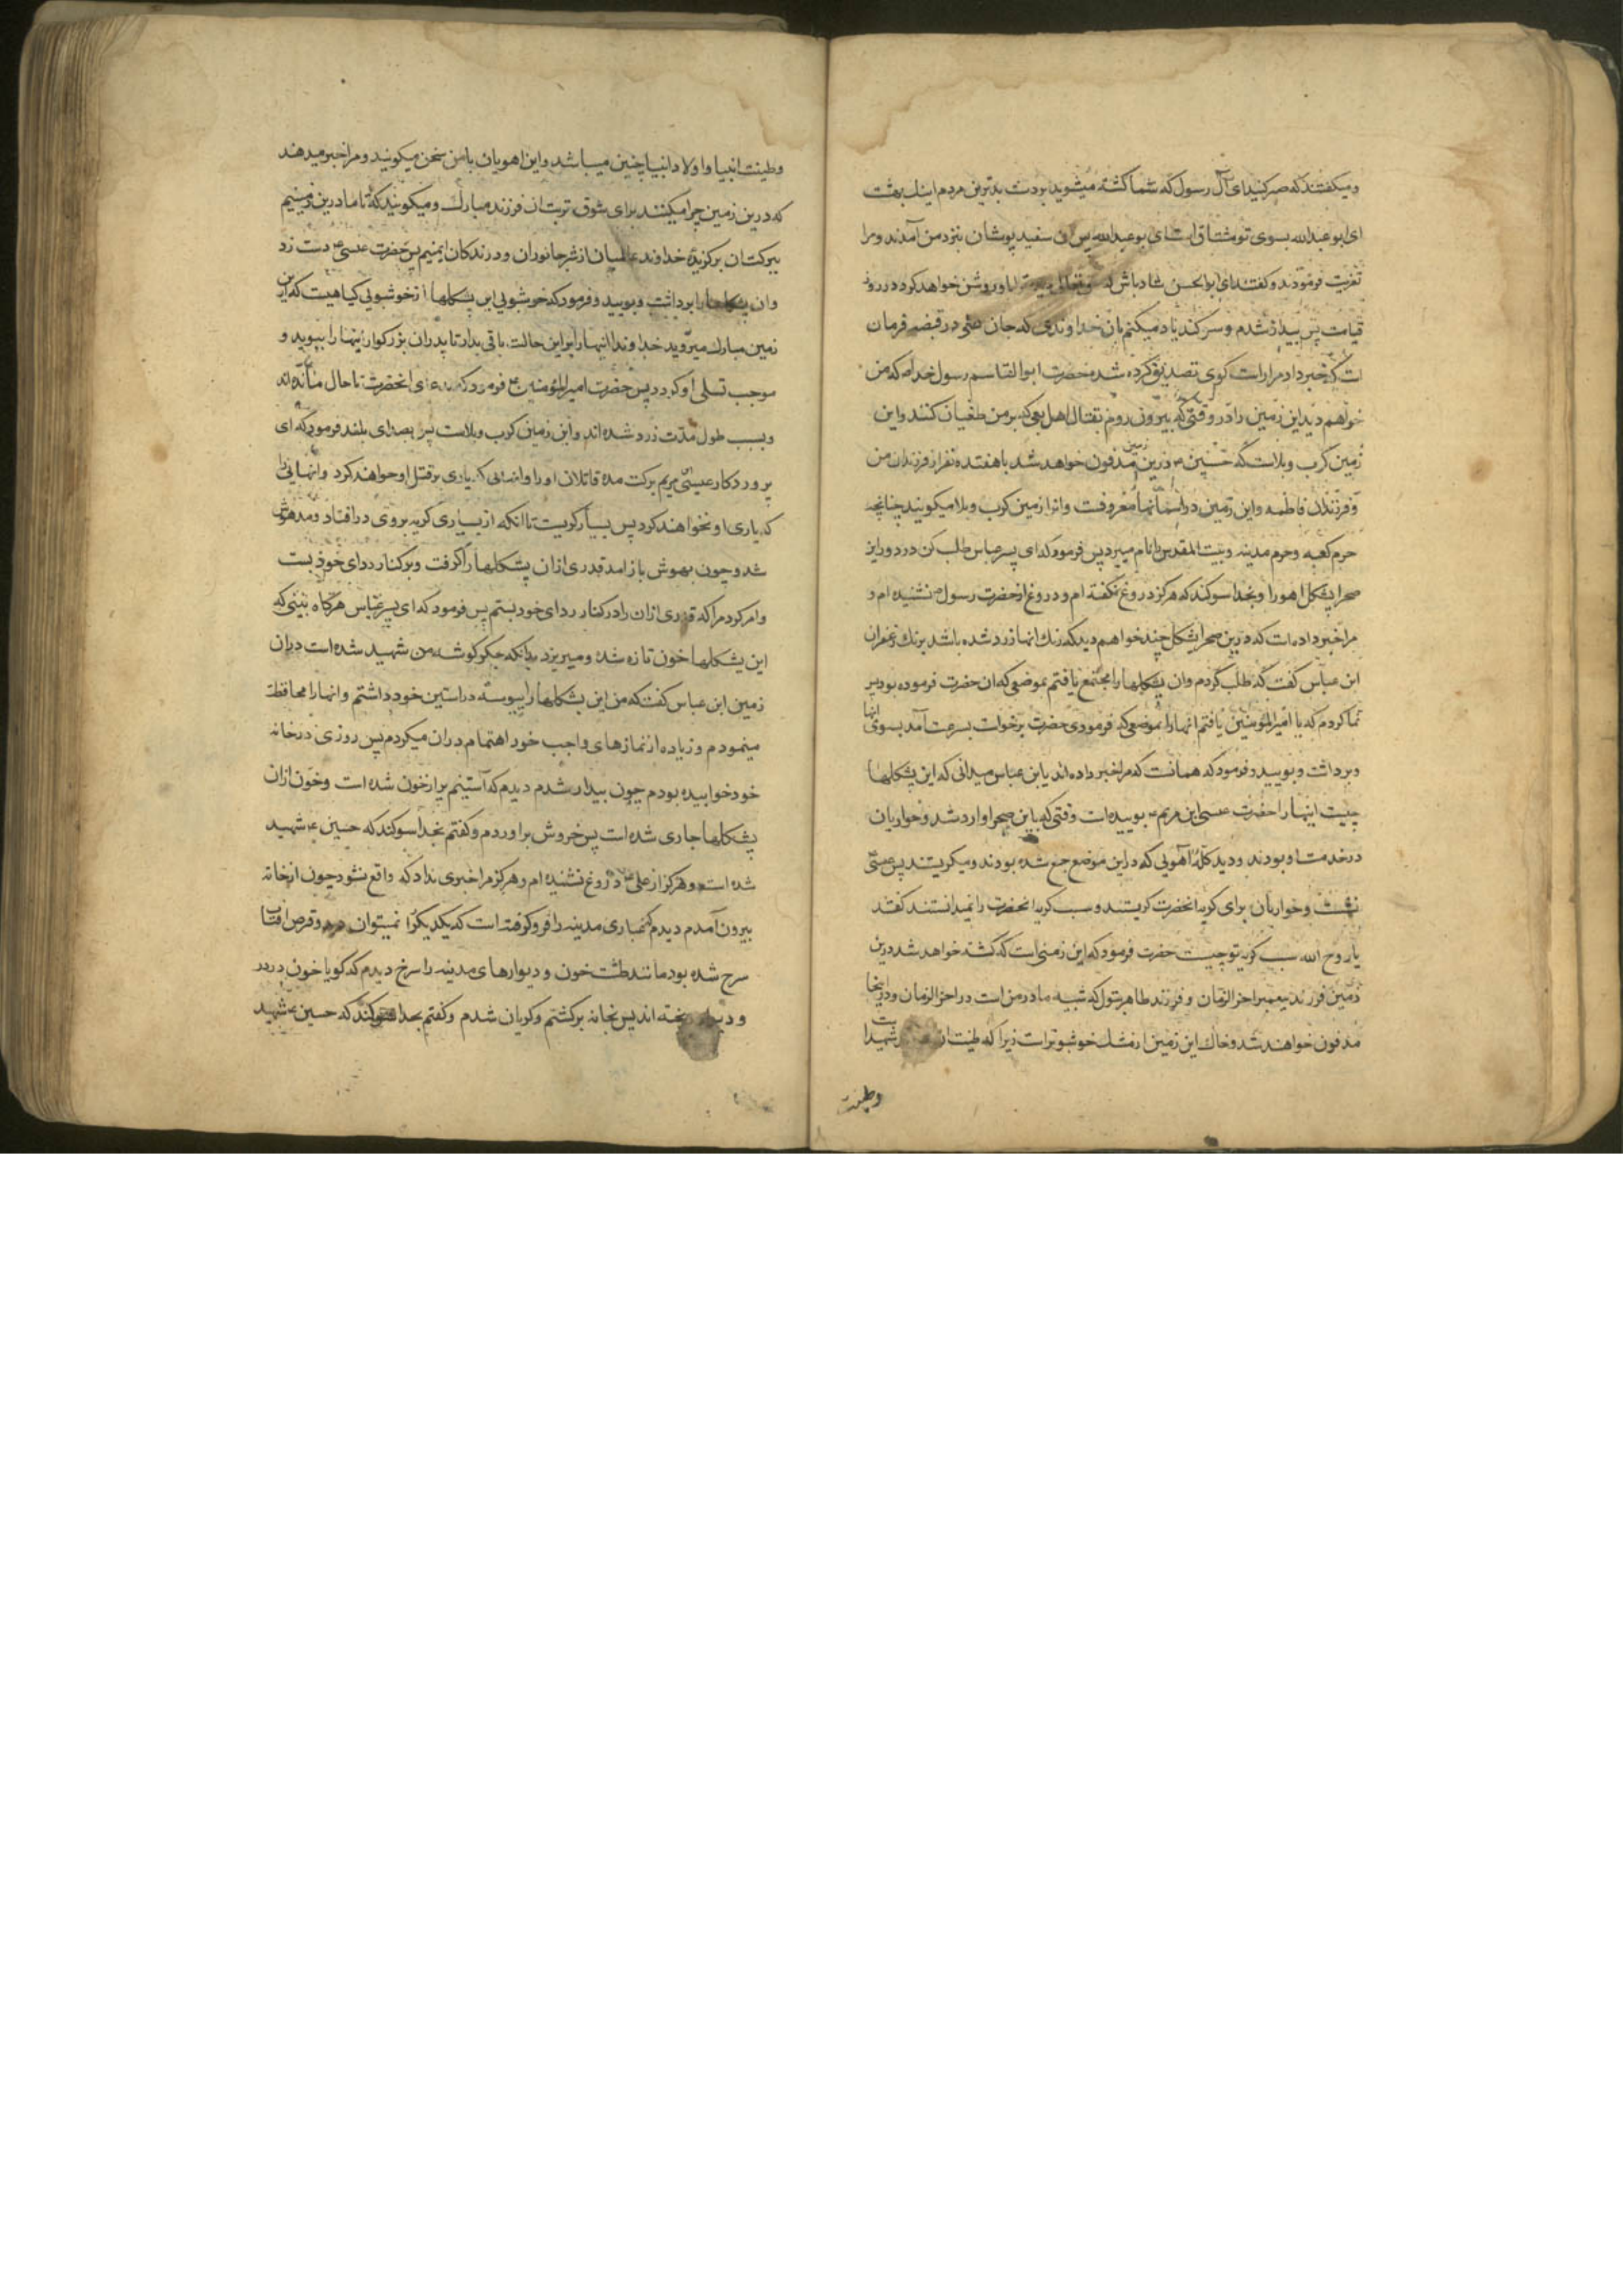 ومیکفتند که صبر کنید ای آل رسول که شما کشته میشوید بردست بدترین مردم اینک بهشت
ای ابو عبدالله بسوی تو مشتاق است ای بو عبدالله پس ان سفید پوشان بنزد من آمدند و مرا
تعزیت فرمودند و کفتند ای ابوالحسن شاد باش که او روشن خواهد کرد در روز
قیامت پس بیدار شدم و سوکند یاد میکنم بان خداوندی که جان علی در قبضه فرمان
است که خبر داد مرا راست کوی تصدیق کرده شده حضرت ابوالقاسم رسول خدا ص که من
خواهم دید این زمین را در وقتی که بیرون روم بقتال اهل بغی که بر من طغیان کنند و این
زمین کرب و بلاست که حسین ع درین زمین مدفون خواهد شد با هفتده نفر از فرزندان من
و فرزندان فاطمه و این زمین در اسمانها معروفست و انرا زمین کرب و بلا میکویند چنانچه
حرم کعبه و حرم مدینه و بیت المقدس را نام میبرد پس فرمود که ای پسر عباس طلب کن در دور این
صحرا پشکل اهو را و بخدا سوکند که هرکز دروغ نکفته ام و دروغ از حضرت رسول ص نشنیده ام و
مرا خبر داده است که درین صحرا پشکل چند خواهم دید که رنک انها زرد شده باشد برنک زعفران
ابن عباس کفت که طلب کردم وان پشکلها را مجتمع یافتم بموضعی که ان حضرت فرموده بود پس
ندا کردم که یا امیرالمؤمنین یافتم انها را بموضعی که فرمودی حضرت برخواست بسرعت آمد بسوی انها
و برداشت و بویید و فرمود که همانست که مرا خبر داده اند یا ابن عباس میدانی که این پشکلها
چیست اینها را حضرت عیسی ابن مریم ع بوییده است وقتی که باین صحرا وارد شد و حواریان
در خدمت او بودند و دید کلهٔ آهویی که در این موضع جمع شده بودند و میکریستند پس عیسی
نشست و حواریان برای کریهٔ انحضرت کریستند و سبب کریه انحضرت را نمیدانستند کفتند
یا روح الله سبب کریهٔ تو چیست حضرت فرمود که این زمینی است که کشته خواهد شد درین
زمین فرزند پیغمبر اخر الزمان و فرزند طاهر بتول که شبیه مادر من است در اخر الزمان و در اینجا
مدفون خواهند شد و خاک این زمین از مشک خوشبوتر است زیرا که طینت ان شهید
وطینت
وطینت انبیا و اولاد انبیا چنین میباشد و این اهویان با من سخن میکویند و مرا خبر میدهند
که درین زمین چرا میکنند برای شوق تربت ان فرزند مبارک و میکویند که تا ما درین زمینیم
ببرکت ان برکزیدهٔ خداوند عالمیان از شر جانوران و درندکان ایمنیم پس حضرت عیسی ع دست زد
وان پشکلها را برداشت و بویید و فرمود که خوشبویی این پشکلها از خوشبویی کیاهیست که این
زمین مبارک میروید خداوندا اینها را براین حالت باقی بدار تا پدران بزرکوار اینها را ببوید و
موجب تسلی او کردد پس حضرت امیرالمؤمنین ع فرمود که بدعای انحضرت تا حال مانده اند
و بسبب طول مدت زرد شده اند و این زمین کرب و بلاست پس بصدای بلند فرمود که ای
پروردکار عیسی مریم برکت مده قاتلان او را و انهایی که یاری بر قتل او خواهند کرد و انهایی را
که یاری او نخواهند کرد پس بسیار کریست تا انکه از بسیاری کریه بروی در افتاد و مدهوش
شد و چون بهوش باز امد قدری ازان پشکلها را کرفت و بر کنار ردای خود بست
و امر کرد مرا که قدری ازان را در کنار ردای خود بستم پس فرمود که ای پسر عباس هرکاه بینی که
این پشکلها خون تازه شد و میریزد بدانکه جکر کوشه من شهید شده است دران
زمین ابن عباس کفت که من این پشکلها را پیوسته در استین خود داشتم و انها را محافظت
مینمودم و زیاده از نمازهای واجب خود اهتمام دران میکردم پس روزی در خانه
خود خوابیده بودم چون بیدار شدم دیدم که آستینم پر از خون شده است و خون ازان
پشکلها جاری شده است پس خروش براوردم و کفتم بخدا سوکند که حسین ع شهید
شده است و هرکز از علی ع دروغ نشنیده ام و هرکز مرا خبری نداد که واقع نشود چون از خانه
بیرون آمدم دیدم که غباری مدینه را فرو کرفته است که یکدیکر را نمیتوان دید و قرص افتاب
سرخ شده بود مانند طشت خون و دیوارهای مدینه را سرخ دیدم که کویا خون در در
و دیوار ریخته اند پس بخانه برکشتم و کریان شدم و کفتم بخدا سوکند که حسین ع شهید